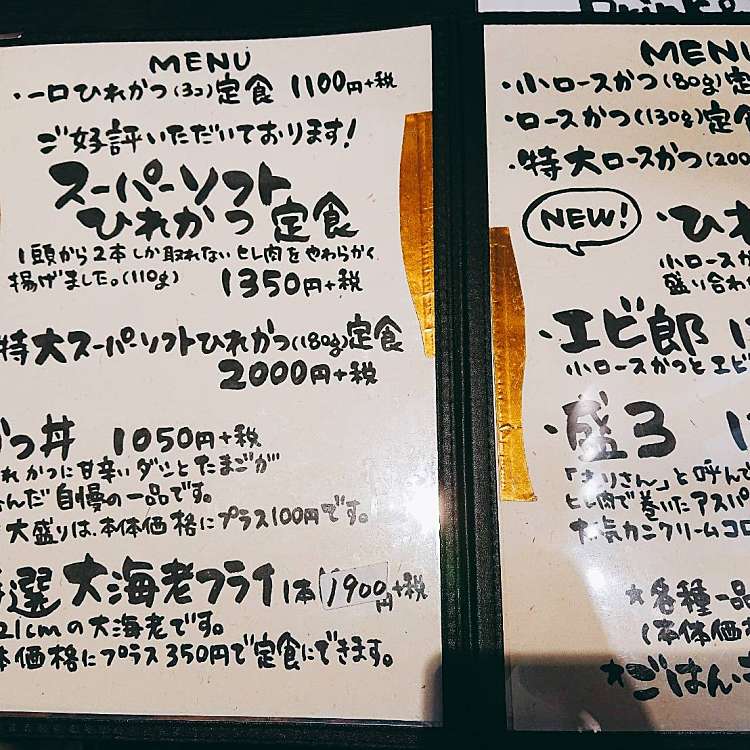 MENU
・一口ひれかつ(3コ)定食 1100円+税
ご好評いただいております!
スーパーソフト
ひれかつ定食
1頭から2本しか取れないヒレ肉をやわらかく
揚げました。(110g) 1350円+税
特大スーパーソフトひれかつ(180g)定食
2000円+税
つ丼 1050円+税
れかつに甘辛いダシとたまごが
んだ自慢の一品です。
大盛りは、本体価格にプラス100円です。
選大海老フライ1本1900円+税
21cmの大海老です。
体価格にプラス350円で定食にできます。
MENU
・小ロースかつ(80g)定
・ロースかつ(130g)定食
・特大ロースかつ(200
NEW!
・ひ
小ロースか
盛り合わ
・エビ郎
小ロースかつとエビ
・盛3
「もりさん」と呼んで
ヒレ肉で巻いたアスパ
大気カニクリームコロ
★各種一品
(本体価格
★ごはん・